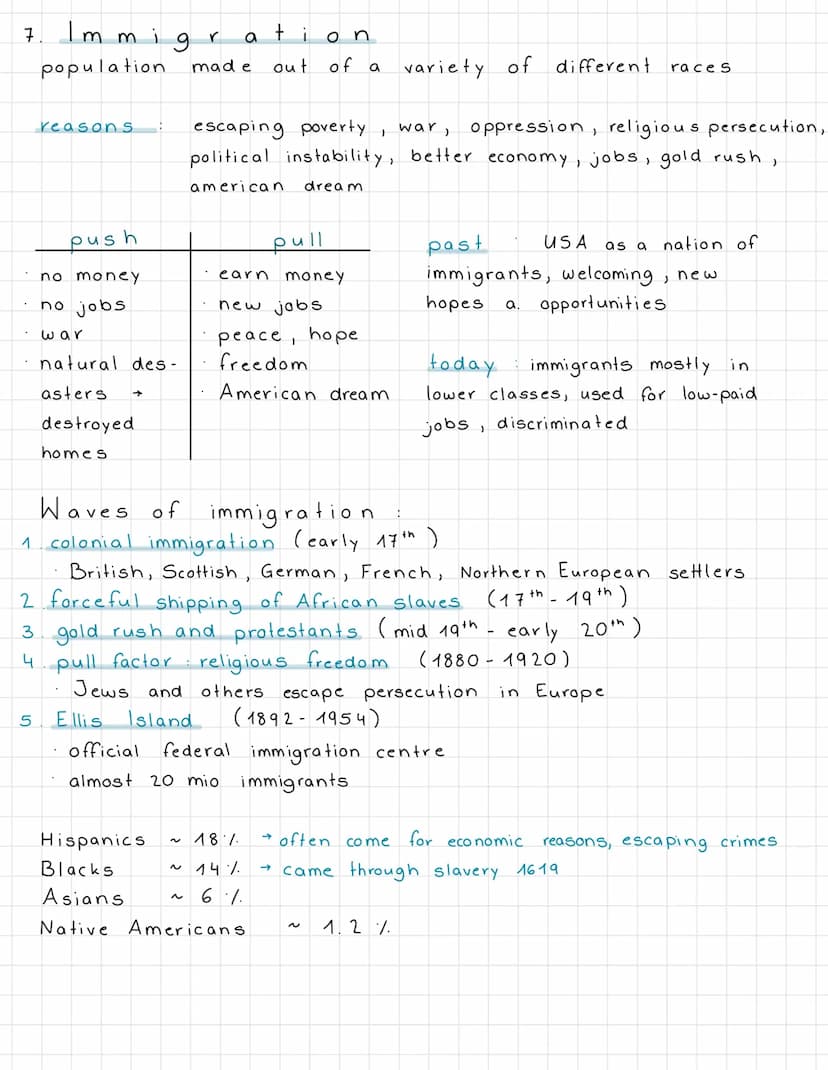 7. Immigration
population made out of a variety of different races
reasons : escaping poverty, war, oppression, religious persecution,
political instability, better economy, jobs, gold rush,
american dream
push
· no money
· no jobs
· war
· natural des-
asters →
destroyed
homes
pull
· earn money
· new jobs
· peace, hope
· freedom
· American dream
past : USA as a nation of
immigrants, welcoming, new
hopes a. opportunities
today : immigrants mostly in
lower classes, used for low-paid
jobs, discriminated
Waves of immigration :
1. colonial immigration (early 17th)
· British, Scottish, German, French, Northern European settlers
2. forceful shipping of African slaves (17th - 19th)
3. gold rush and protestants (mid 19th - early 20th)
4. pull factor : religious freedom (1880 - 1920)
· Jews and others escape persecution in Europe
5. Ellis Island (1892 - 1954)
· official federal immigration centre
· almost 20 mio immigrants
Hispanics ~ 18 % → often come for economic reasons, escaping crimes
Blacks ~ 14 % → came through slavery 1619
Asians ~ 6 %
Native Americans ~ 1.2 %